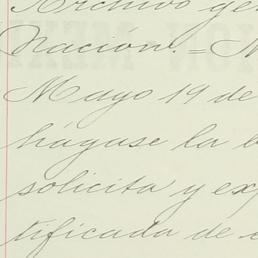 Archivo ge
Nación.=M
Mayo 19 de
hágase la b
solicita y exp
tificada de c